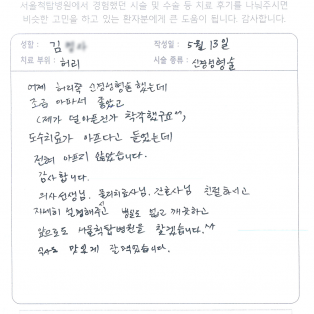 서울척탑병원에서 경험했던 시술 및 수술 등 치료 후기를 나눠주시면
비슷한 고민을 하고 있는 환자분에게 큰 도움이 됩니다. 감사합니다.
성함 : 김
작성일 : 5월 13일
치료 부위 : 허리
시술 종류 : 신경성형술
어제 허리쪽 신경성형술 했는데
조금 아파서 좋았고
(제가 덜 아픈건가 착각했구요^^,
도수치료가 아프다고 들었는데
전혀 아프지 않았습니다.
감사합니다.
의사선생님, 물리치료사님, 간호사님 친절하시고
자세히 설명해주고 병실도 넓고 깨끗하고
앞으로도 서울척탑병원을 찾겠습니다.^^
식사도 맛있게 잘 먹었습니다.